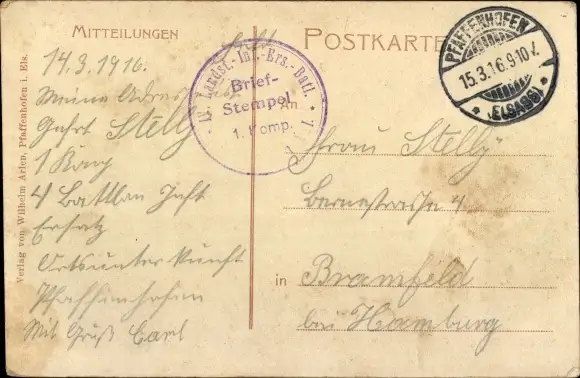 MITTEILUNGEN
POSTKARTE
14.3.1916.
Meine Adres
Gefrt Stelly
1 Komp
4 Battlon Inft
Ersatz
Ortsunterkunft
Pfaffenhofen
Mit Gruß Carl
Landst.-Inf.-Ers.-Batl.
Brief-
Stempel
1. Komp.
PFAFFENHOFEN
15.3.16.9-10V.
* (ELSASS) *
An
Frau Stelly
Bernestraße 4
in Bramfeld
bei Hamburg
Verlag von Wilhelm Arlen, Pfaffenhofen i. Els.